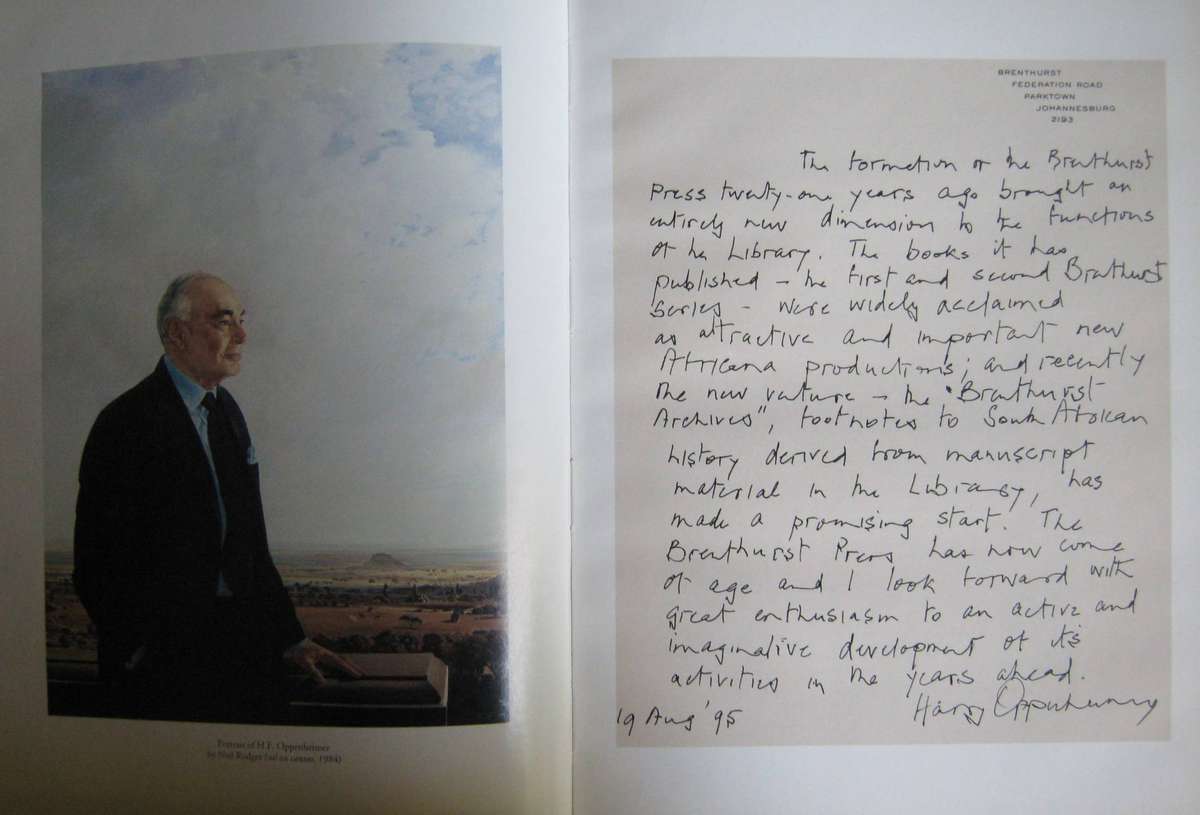 Portrait of H.F. Oppenheimer
by Neil Rodger (oil on canvas, 1984)
BRENTHURST
FEDERATION ROAD
PARKTOWN
JOHANNESBURG
2193
The formation of the Brenthurst
Press twenty-one years ago brought an
entirely new dimension to the functions
of the Library. The books it has
published – the first and second Brenthurst
Series – were widely acclaimed
as attractive and important new
Africana productions; and recently
the new venture – the "Brenthurst
Archives", footnotes to South African
history derived from manuscript
material in the Library, has
made a promising start. The
Brenthurst Press has now come
of age and I look forward with
great enthusiasm to an active and
imaginative development of its
activities in the years ahead.
19 Aug '95
Harry Oppenheimer